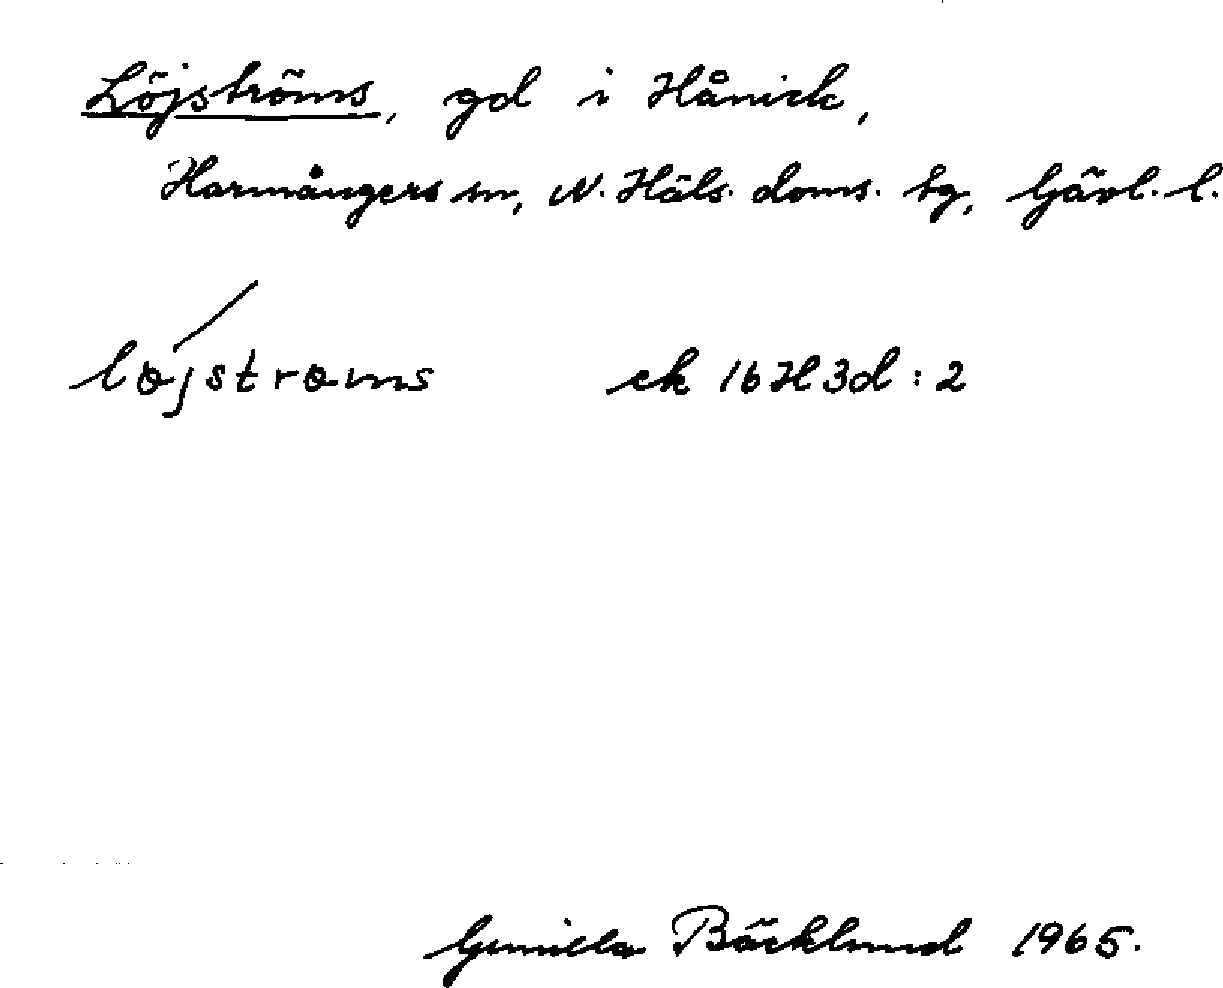 Löjströms, gd i Hånick,
Harmångers sn, N. Häls. doms. tg, Gävl. l.
löjströms ek 16H3d:2
Gunilla Bäcklund 1965.